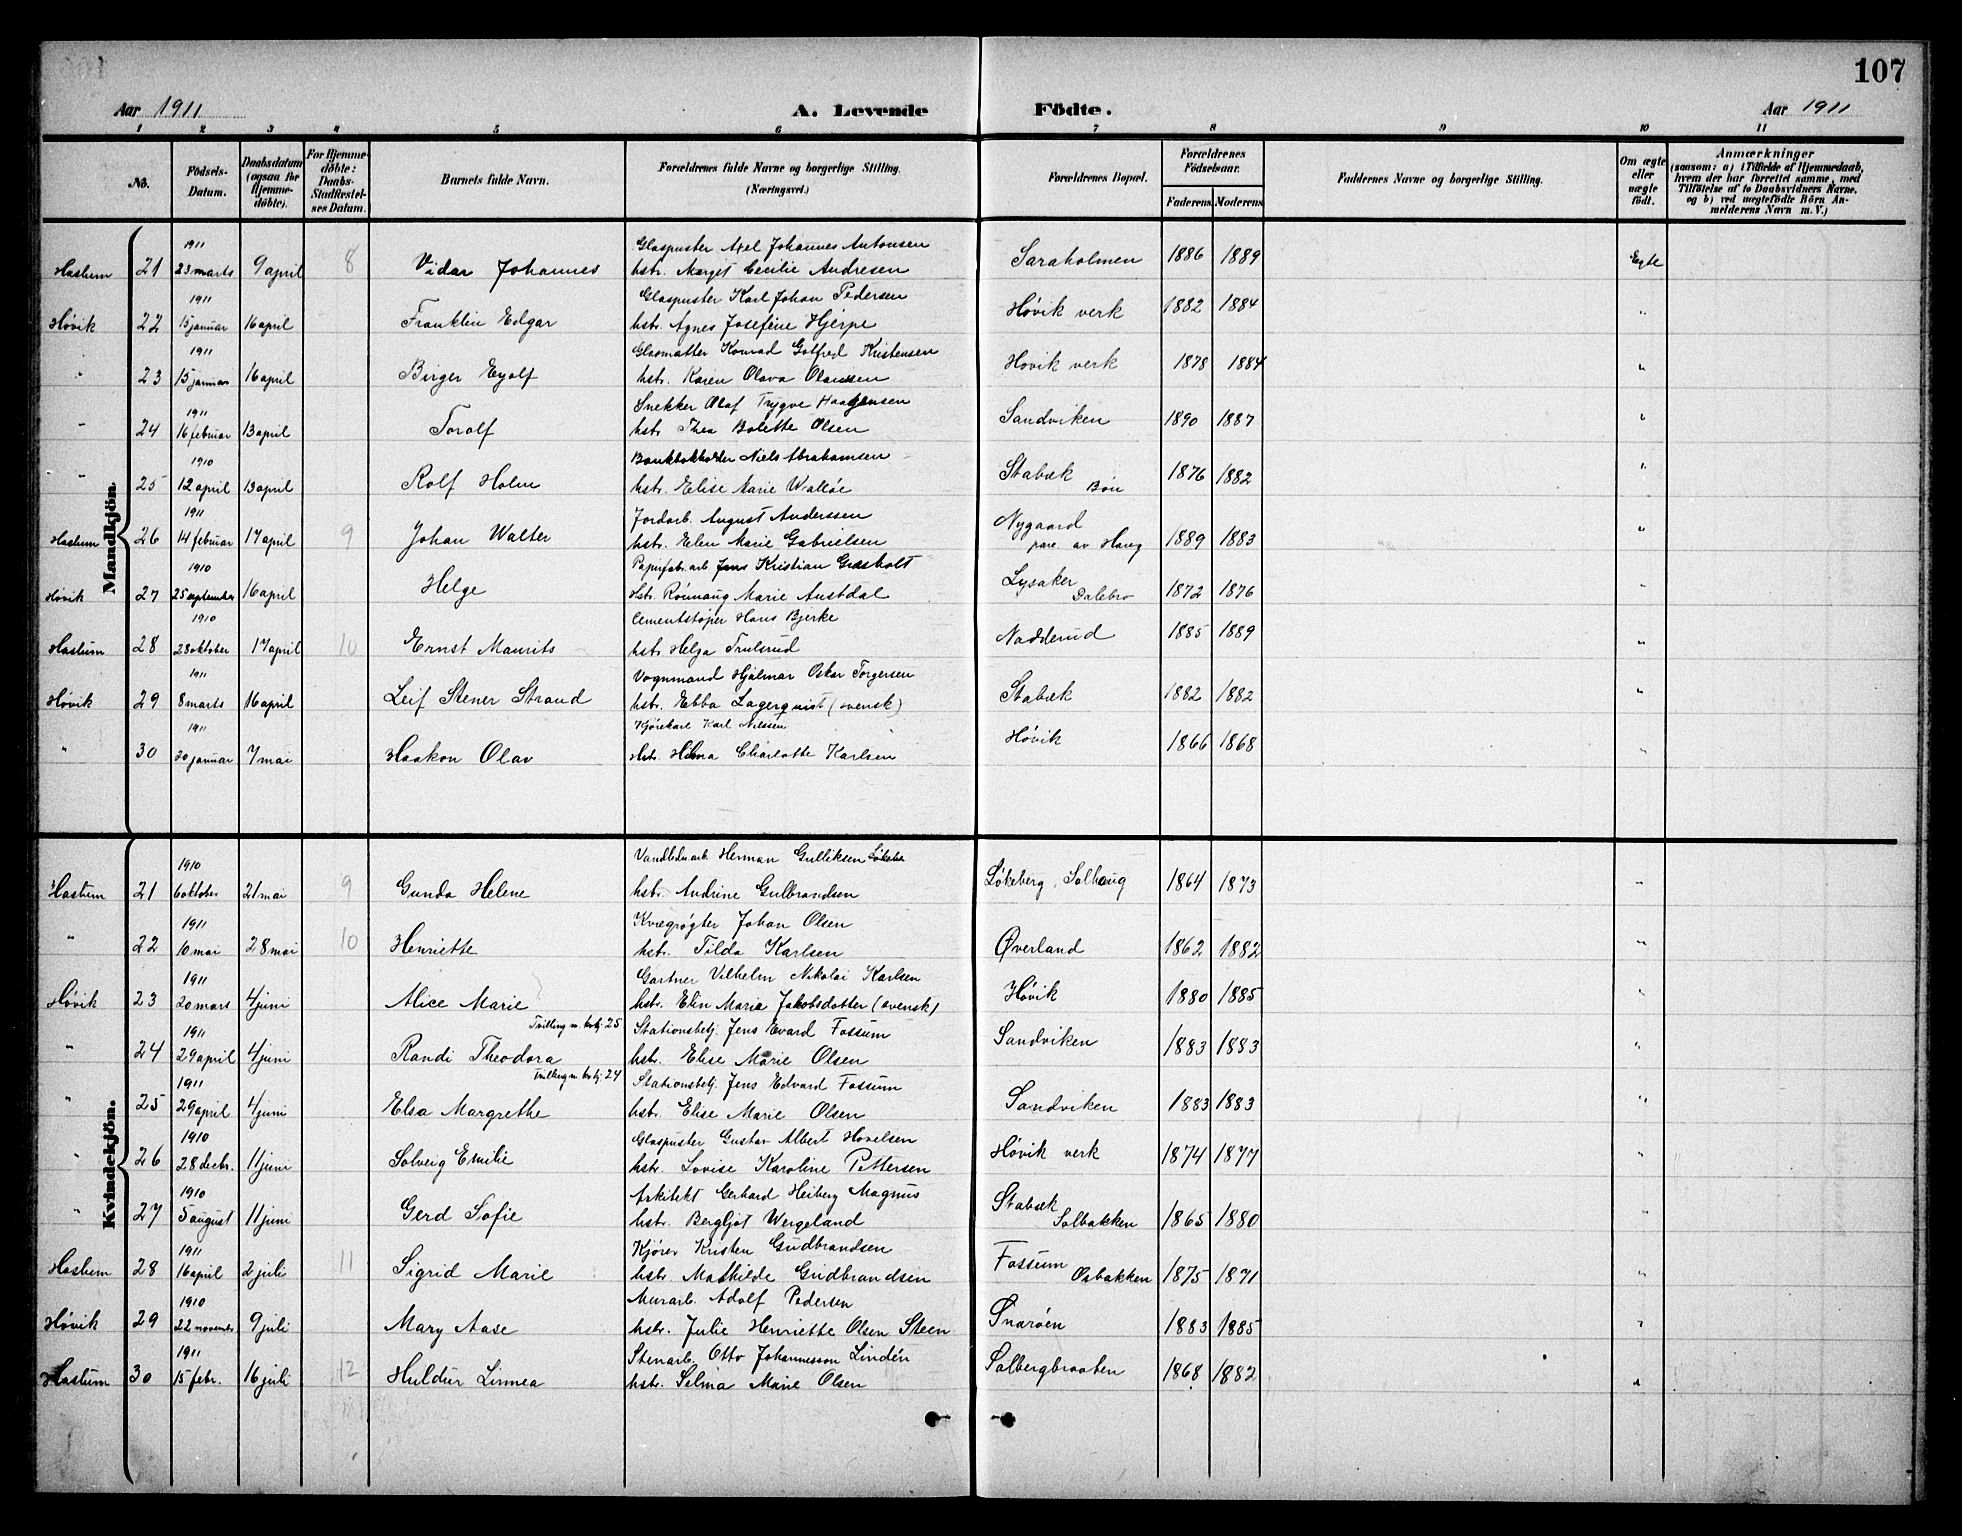 107
Aar 1911 A. Levende Födte. Aar 1911
1 2 3 4 5 6 7 8 9 10 11
No. Födsels-Datum. Daabsdatum (ogsaa for Hjemme-döbte). For Hjemme-döbte: Daabs-Stadfæstel-ses Datum. Barnets fulde Navn. Forældrenes fulde Navne og borgerlige Stilling. (Næringsvei.) Forældrenes Bopæl. Forældrenes Fødselsaar. Faderens Moderens Faddernes Navne og borgerlige Stilling. Om ægte eller uægte födt. Anmærkninger (saasom: a) i Tilfælde af Hjemmedaab, hvem der har forrettet samme, med Tilföielse af to Daabsvidners Navne, og b) ved uægtefödte Börn An-melderens Navn m. V.)
Mandkjön
1911 Glaspuster Axel Johannes Antonsen
Haslum 21 23 marts 9 april 8 Vidar Johannes hstr. Marget Cecilie Andresen Saraholmen 1886 1889 Egte
1911 Glaspuster Karl Johan Pedersen
Høvik 22 15 januar 16 april Franklin Edgar hstr. Agnes Josefine Hjerpe Høvik verk 1882 1884 "
1911 Glasmatter Konrad Gotfred Kristensen
" 23 15 januar 16 april Birger Eyolf hstr. Karen Olava Olausen Høvik verk 1878 1884 "
1911 Snekker Olaf Trygve Haagensen
" 24 16 februar 13 april Torolf hstr. Thea Bolette Olsen Sandviken 1890 1887 "
1910 Bankbokholder Niels Abrahamsen
" 25 12 april 13 april Rolf Holm hstr. Elise Marie Walløe Stabæk 1876 1882 "
1911 Jordarb. August Anderssen
Haslum 26 14 februar 17 april 9 Johan Walter hstr. Elen Marie Gabrielsen Nygaard pare. av Haug 1889 1883 "
1910 Papirfabr.arb Jens Kristian Grasholt
Høvik 27 25 september 16 april Helge Hstr. Rönnaug Marie Austdal Lysaker Dalebro 1872 1876 "
1910 Cementstøper Hans Bjerke
Haslum 28 28 oktober 17 april 10 Ernst Maurits hstr. Helga Trulsrud Nadderud 1885 1889 "
1911 Vognmand Hjalmar Oskar Torgersen
Høvik 29 8 marts 16 april Leif Stener Strand hstr. Ebba Lagerquist (svensk) Stabæk 1882 1882 "
1911 Kjørekarl Karl Nilssen
" 30 20 januar 7 mai Haakon Olav Hstr. Hilma Charlotte Karlsen Høvik 1866 1868 "
Kvindekjön.
1910 Vandledn.arb Herman Gulliksen
Haslum 21 6 oktober 21 mai 9 Gunda Helene hstr. Andrine Gulbrandsen Løkeberg, Solhaug 1864 1873 "
1911 Kvægrøgter Johan Olsen
" 22 10 mai 28 mai 10 Henriette hstr. Tilda Karlsen Øverland 1862 1882 "
1911 Gartner Vilhelm Nikolai Karlsen
Høvik 23 20 mars 4 juni Alice Marie hstr. Elin Maria Jakobsdotter (svensk) Høvik 1880 1885 "
1911 Tvilling m. kvkj. 25 Stationsbetj. Jens Evard Fossum
" 24 29 april 4 juni Randi Theodora hstr. Elise Marie Olsen Sandviken 1883 1883 "
1911 Tvilling m. kvkj. 24 Stationsbetj. Jens Edvard Fossum
" 25 29 april 4 juni Elsa Margrethe hstr. Elise Marie Olsen Sandviken 1883 1883 "
1910 Glaspuster Gustav Albert Hovelsen
" 26 28 decbr. 11 juni Solveig Emilie hstr. Lovise Karoline Pettersen Høvik verk 1874 1877 "
1910 Arkitekt Gerhard Heiberg Magnus
" 27 5 august 11 juni Gerd Sofie hstr. Bergljot Wergeland Stabæk Solbakken 1865 1880 "
1911 Kjører Kristen Gudbrandsen
Haslum 28 16 april 2 juli 11 Sigrid Marie hstr. Mathilde Gudbrandsen Fossum Osbakken 1875 1871 "
1910 Murarb. Adolf Pedersen
Høvik 29 22 november 9 juli Mary Aase hstr. Julie Henriette Olsen Steen Snarøen 1883 1885 "
1911 Stenarb. Otto Johannesson Lindén
Haslum 30 15 febr. 16 juli 12 Huldur Linnea hstr. Selma Marie Olsen Solbergbraaten 1868 1882 "